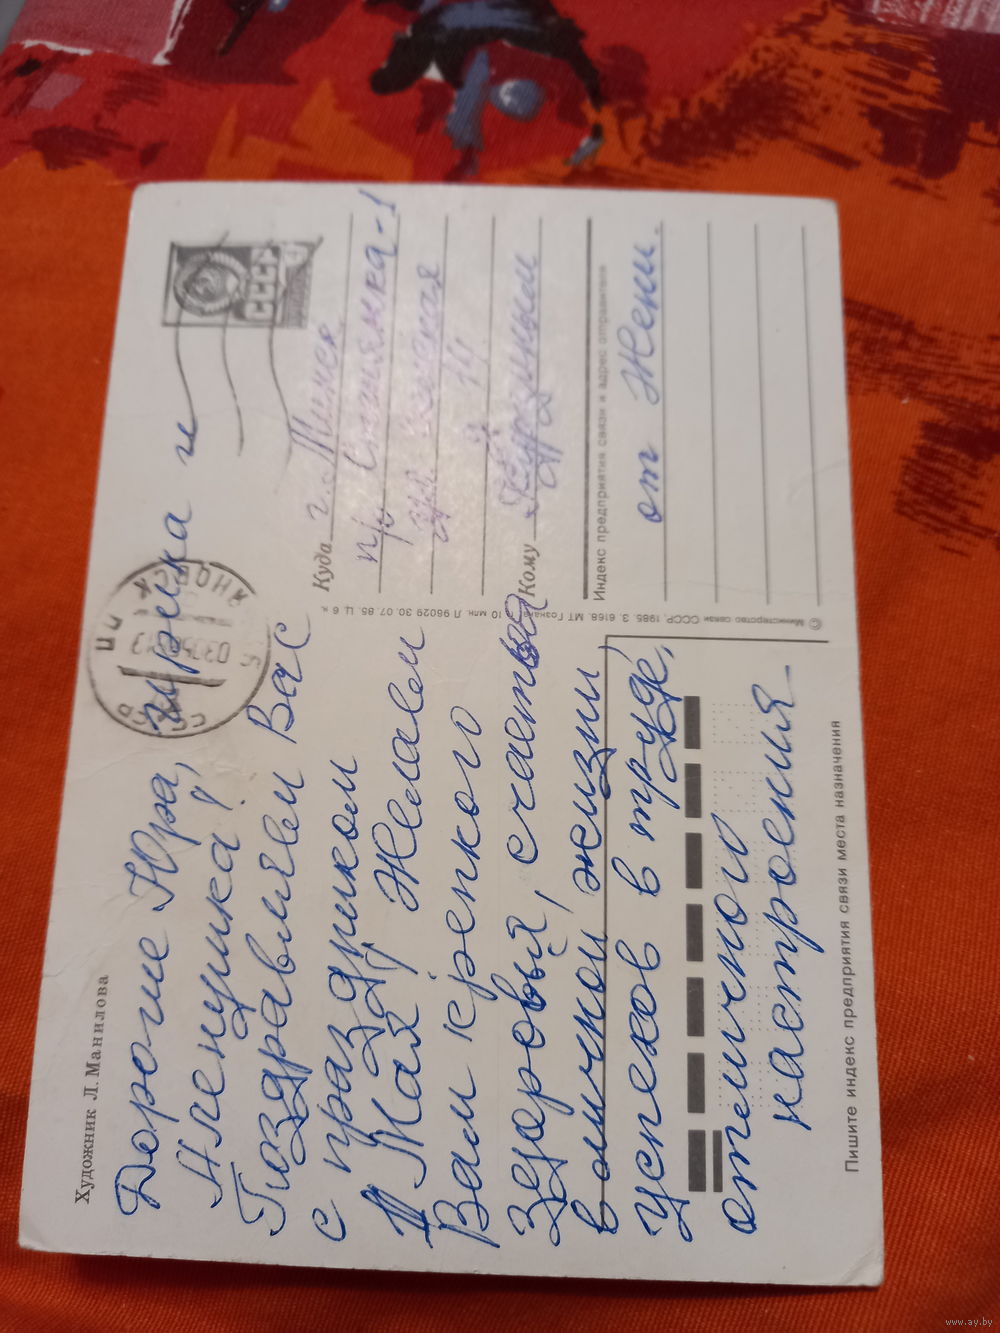 Художник Л. Манилова
Дорогие Юра, Иришка и
Аленушка!
Поздравляем Вас
с праздником
1 Мая! Желаем
Вам крепкого
здоровья, счастья
в личной жизни,
успехов в труде,
отличного
настроения
СССР
Куда г. Минск
п/о Степянка-1
ул.
Кому
Индекс предприятия связи и адрес отправителя
от Жени.
© Министерство связи СССР, 1985. З. 6168. МТ Гознака. 10 млн. Л 95029 30.07.85. Ц. 6 к.
Пишите индекс предприятия связи места назначения
www.ay.by